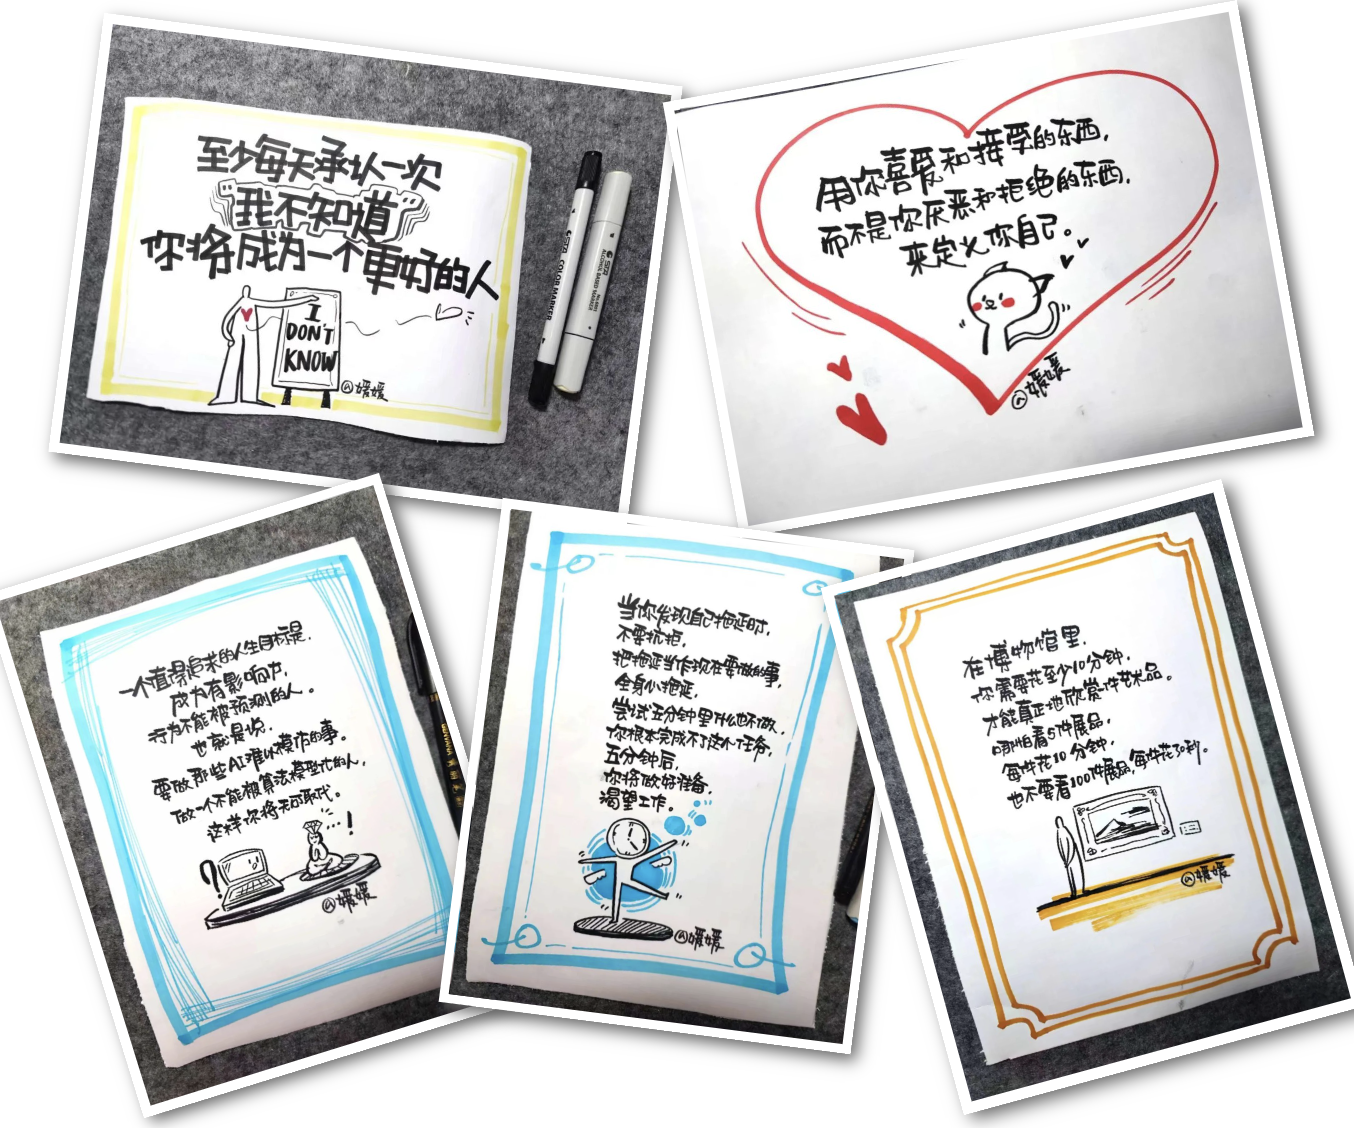 至少每天承认一次
我不知道
你将成为一个更好的人
I
DON'T
KNOW
@媛媛
STA COLOR MARKER
STA ALCOHOL BASED MARKER
用你喜爱和接受的东西,
而不是你厌恶和拒绝的东西,
来定义你自己。
@媛媛
一个值得追求的人生目标是,
成为有影响力,
行为不能被预测的人。
也就是说,
要做那些AI难以模仿的事。
做一个不能被算法模型代的人,
这样你将无可取代。
?
!
@媛媛
当你发现自己拖延时,
不要抗拒,
把拖延当作现在要做的事,
全身心拖延,
尝试五分钟里什么也不做,
你根本完成不了这个任务,
五分钟后,
你将做好准备,
渴望工作。
@媛媛
在博物馆里,
你需要花至少10分钟,
才能真正地欣赏一件艺术品。
哪怕看5件展品,
每件花10分钟,
也不要看100件展品,每件花30秒。
@媛媛